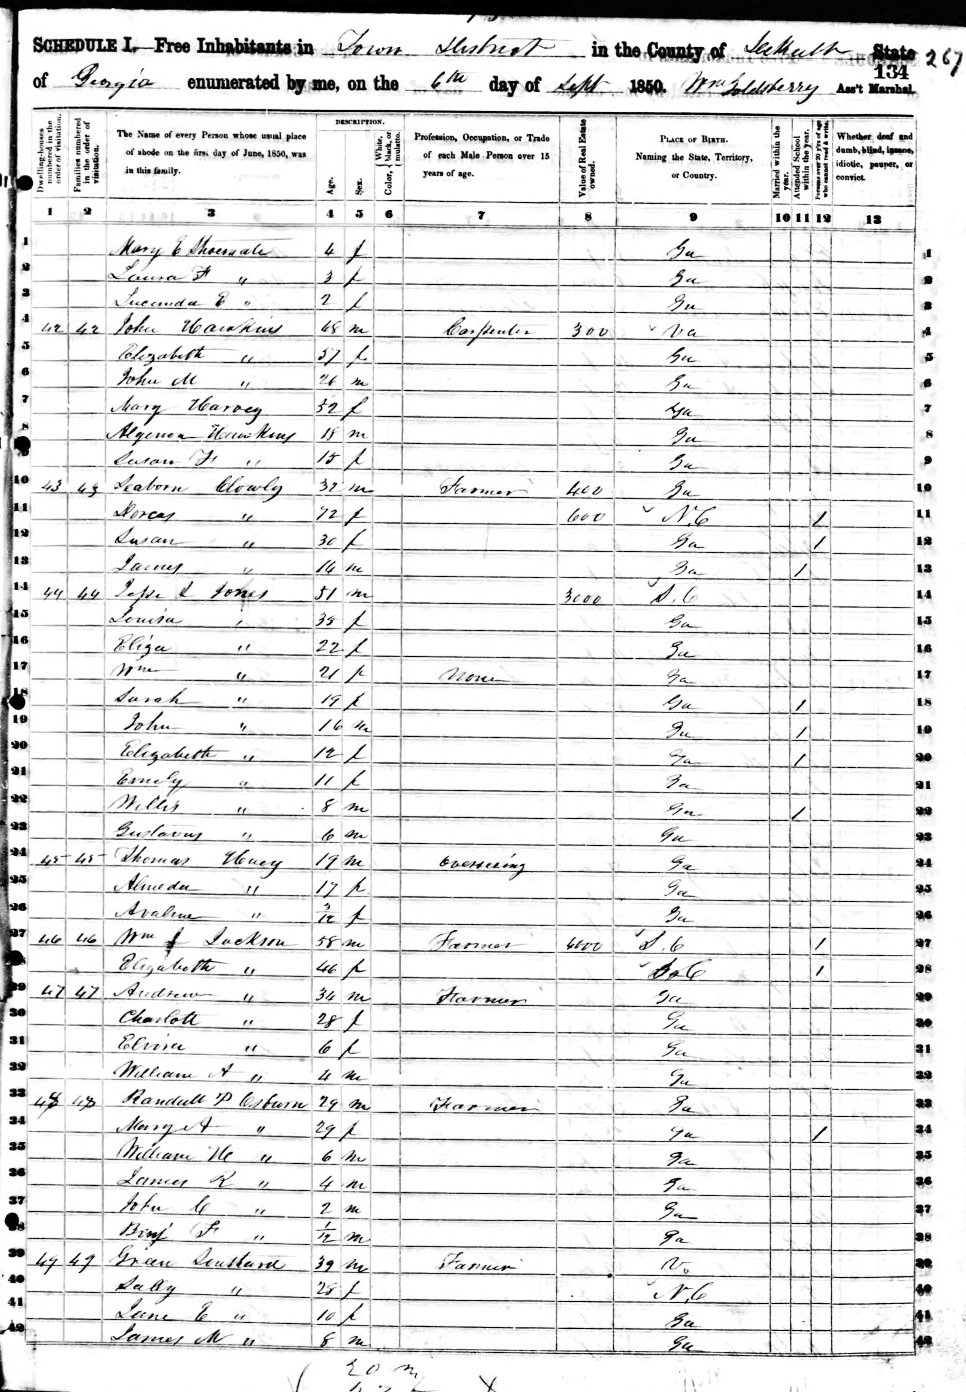 SCHEDULE I.—Free Inhabitants in Town District in the County of DeKalb State 267
of Georgia enumerated by me, on the 6th day of Sept 1850. Wm Goldsberry Ass't Marshal. 134
Dwelling-houses numbered in the order of visitation. Families numbered in the order of visitation. The Name of every Person whose usual place of abode on the first day of June, 1850, was in this family. DESCRIPTION. Age. Sex. Color, White, black, or mulatto. Profession, Occupation, or Trade of each Male Person over 15 years of age. Value of Real Estate owned. PLACE OF BIRTH. Naming the State, Territory, or Country. Married within the year. Attended School within the year. Persons over 20 y'rs of age who cannot read & write. Whether deaf and dumb, blind, insane, idiotic, pauper, or convict.
1 2 3 4 5 6 7 8 9 10 11 12 13
1 Mary E 4 f Ga 1
2 Laura F " 3 f Ga 2
3 Lucinda E " 2 f Ga 3
4 42 42 John Hawkins 48 m Carpenter 300 Va 4
5 Elizabeth " 37 f Ga 5
6 John M " 26 m Ga 6
7 Mary Harvey 52 f Ga 7
8 Hawkins 18 m Ga 8
9 Susan F " 15 f Ga 9
10 43 43 Seaborn 32 m Farmer 400 Ga 10
11 Dorcas " 72 f 600 N.C 1 11
12 Susan " 30 f Ga 1 12
13 James " 14 m Ga 1 13
14 44 44 Jesse L Jones 51 m 3000 S.C 14
15 Louisa " 38 f Ga 15
16 Eliza " 22 f Ga 16
17 Wm " 21 None Ga 17
18 Sarah " 19 f Ga 1 18
19 John " 16 m Ga 1 19
20 Elizabeth " 12 f Ga 1 20
21 Emily " 11 f Ga 21
22 Willis " 8 m Ga 1 22
23 Gustavus " 6 m Ga 23
24 45 45 Thomas Huey 19 m Overseeing Ga 24
25 Almeda " 17 f Ga 25
26 Avaline " 3/12 f Ga 26
27 46 46 Wm J Jackson 58 m Farmer 4000 S.C 1 27
28 Elizabeth " 46 f S C 1 28
29 47 47 Andrew " 34 m Farmer Ga 29
30 Charlott " 28 f Ga 30
31 Elvira " 6 f Ga 31
32 William A " 4 m Ga 32
33 48 48 Randall P Osburn 29 m Farmer Ga 33
34 Mary A " 29 f Ga 1 34
35 William H " 6 m Ga 35
36 James R " 4 m Ga 36
37 John C " 2 m Ga 37
38 Benj F " 1/12 m Ga 38
39 49 49 39 m Farmer Va 39
40 Sally " 28 f N.C 40
41 Jane E " 10 f Ga 41
42 James M " 8 m Ga 42
20 m